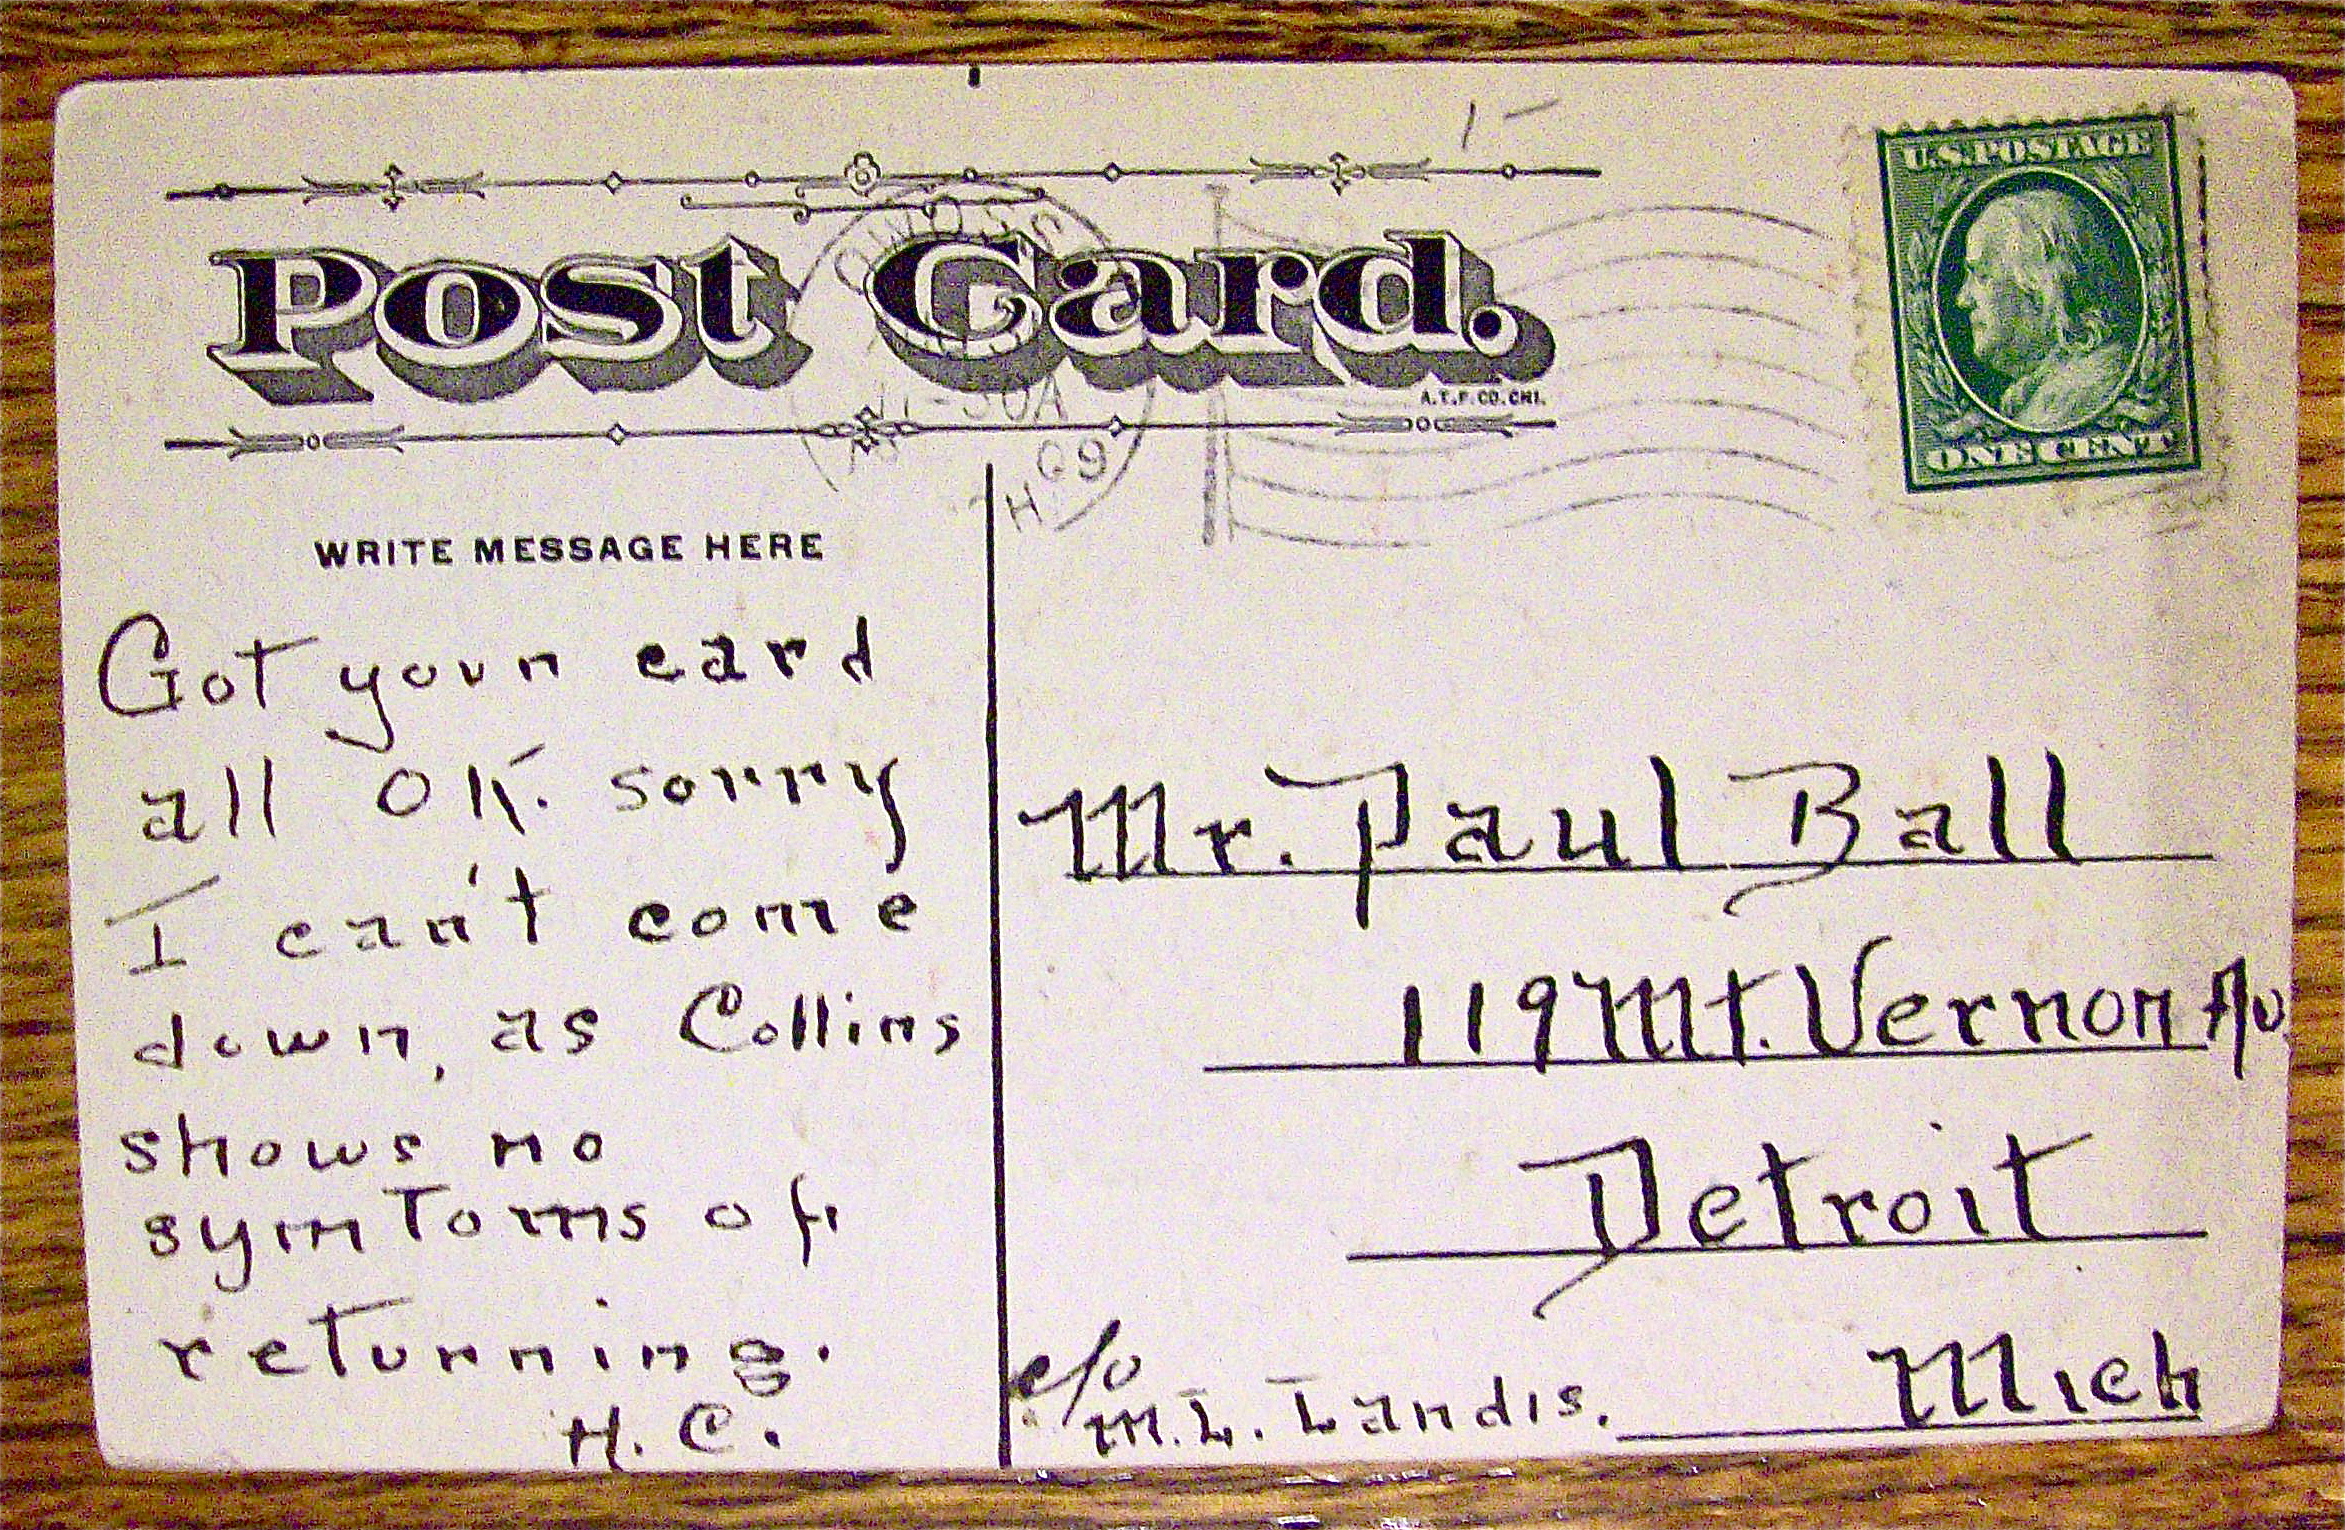 1-
U.S.POSTAGE
ONE CENT
Post Card.
A.T.F.CO.CHI.
OWOSS
-30A
09
H
WRITE MESSAGE HERE
Got your card
all OK. sorry
I can't come
down, as Collins
shows no
symtoms of
returning.
H. C.
Mr. Paul Ball
119 Mt. Vernon Av
Detroit
Mich
c/o
M. L. Landis.